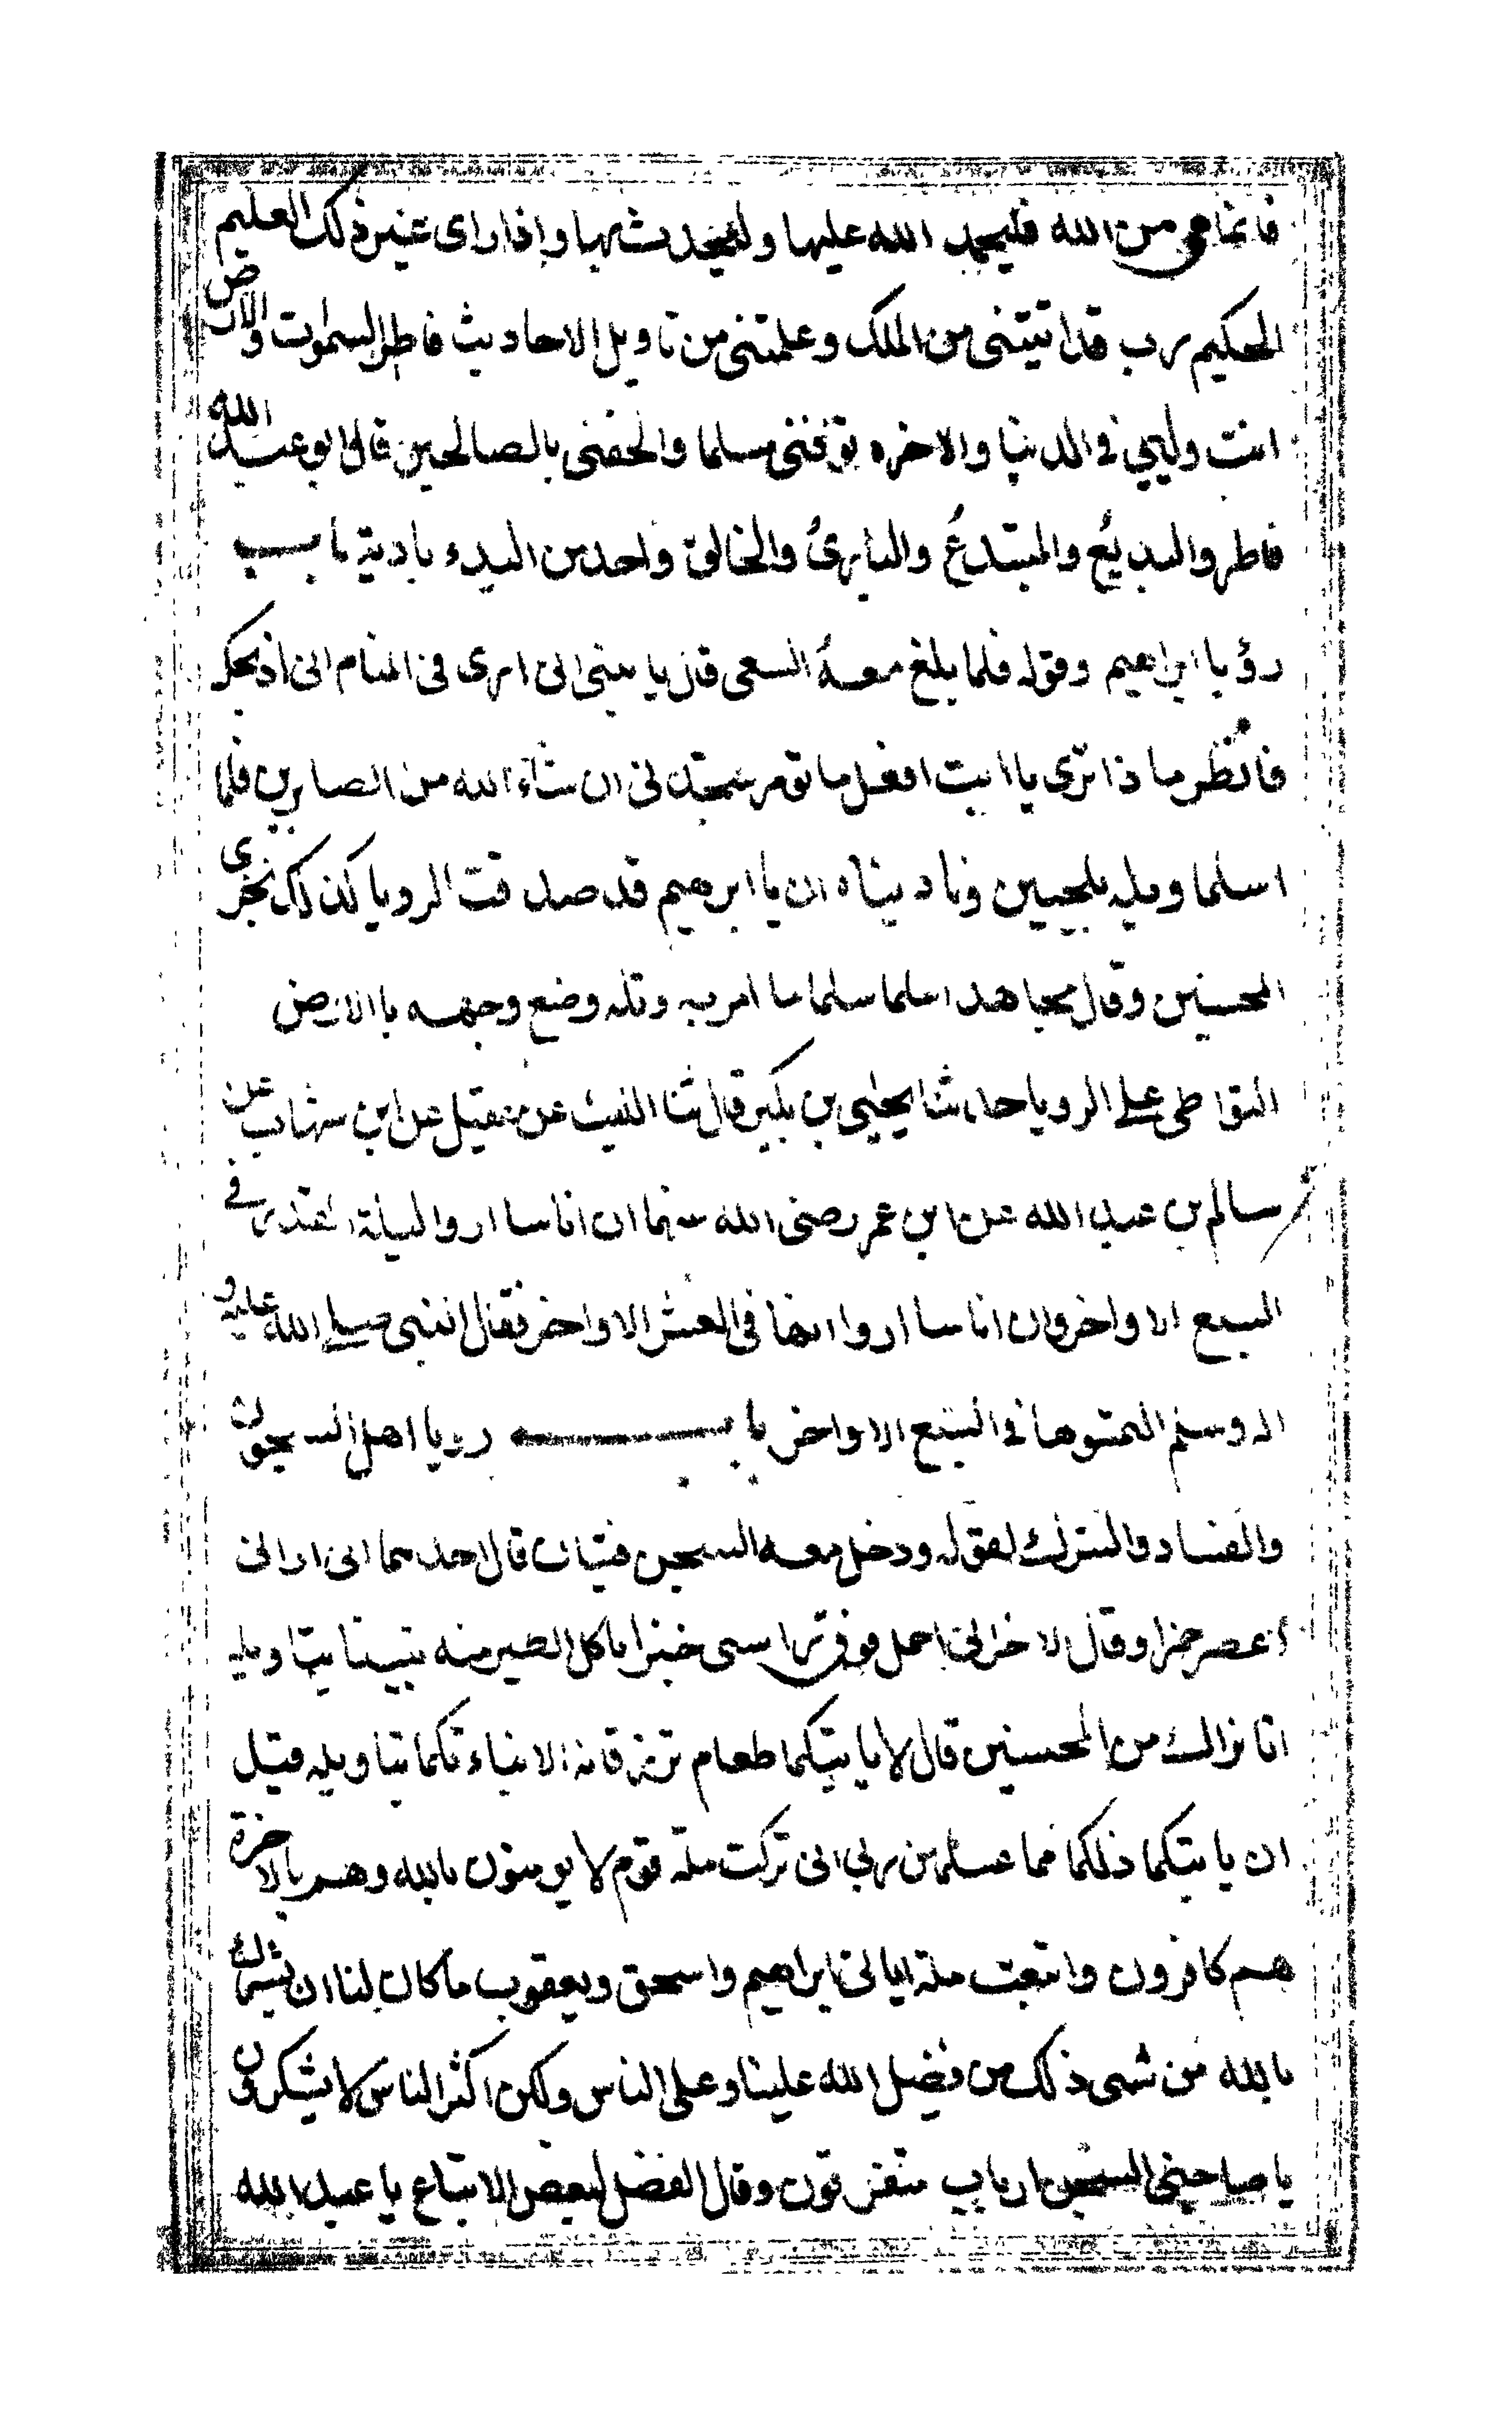 فانما هى من الله فليحمد الله عليها وليحدث بها واذا راى غير ذلك العليم
الحكيم رب قد اتيتنى من الملك وعلمتنى من تاويل الاحاديث فاطر السموات والارض
انت وليى فى الدنيا والاخره توفنى مسلما والحقنى بالصالحين قال ابو عبد الله
فاطر والبديع والمبتدع والبارئ والخالق واحد من البدء بادية باب
رؤيا ابراهيم وقوله فلما بلغ معه السعى قال يا بنى انى ارى فى المنام انى اذبحك
فانظر ماذا ترى يا ابت افعل ما تومر ستجدنى ان شاء الله من الصابرين فلما
اسلما وتله للجبين وناديناه ان يا ابرهيم قد صدقت الرويا كذلك نجزى
المحسنين وقال مجاهد اسلما سلما ما امر به وتله وضع وجهه بالارض
التواطى على الرويا حدثنا يحيى بن بكير قال ثنا الليث عن عقيل عن ابن شهاب عن
سالم بن عبد الله عن ابن عمر رضى الله عنهما ان اناسا اروا ليلة القدر فى
السبع الاواخر وان اناسا اروا انها فى العشر الاواخر فقال النبى صلى الله عليه و
اله وسلم التمسوها فى السبع الاواخر باب رويا اهل السجون
والفساد والشرك لقوله ودخل معه السجن فتيان قال احدهما انى ارانى
اعصر خمرا وقال الاخر انى احمل فوق راسى خبزا ياكل الطير منه نبينا بتاويله
انا نراك من المحسنين قال لا ياتيكما طعام ترزقانه الا نباءتكما بتاويله قبل
ان ياتيكما ذلكما مما علمنى ربى انى تركت ملة قوم لا يومنون بالله وهم بالاخرة
هم كافرون واتبعت ملة ابائى ابراهيم واسحق ويعقوب ما كان لنا ان نشرك
بالله من شى ذلك من فضل الله علينا وعلى الناس ولكن اكثر الناس لا يشكرون
يا صاحبى السجن ارباب متفرقون وقال الفضل لبعض الاتباع يا عبد الله